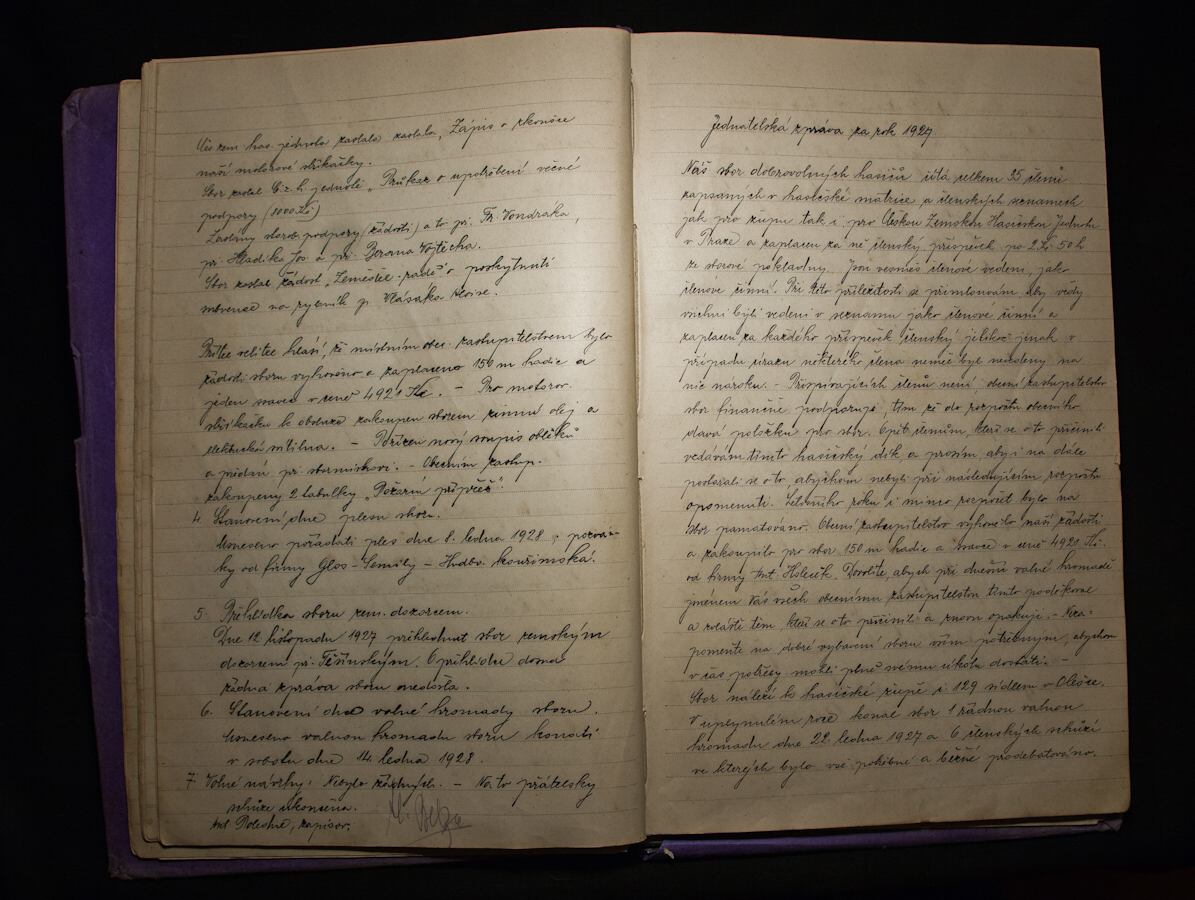 Čes. zem. has. jednota zaslala zaslala, Zápis o zkoušce
naší motorové stříkačky.
Sbor zaslal Č. z. h. jednotě „Průkaz o upotřebení věcné
podpory (8000 Kč)
Žádosti o podpory (žádosti) a to: př. Fr. Vondráka,
př. Hladíka Jos. a př. Berana Vojtěcha.
Sbor zaslal žádost „Zemědělc. radě" o poskytnutí
subvence na rybník p. Vlasáka Aloise.
velitel hlásí, že místním obec. zastupitelstvem bylo
žádosti sboru vyhověno a zaplaceno 150 m hadic a
jeden savec v ceně 4921 Kč. – Pro motorov.
stříkačku k obsluze zakoupen sborem zimní olej a
elektrická svítilna. – Pořízen nový soupis obleků
a předán př. zbrojmistrovi. – Obecním zastup.
zakoupeny 2 tabulky „Požární přípřež".
4. Stanovení dne plesu sboru.
Usneseno pořádati ples dne 8. ledna 1928; pozván-
ky od firmy Glos – Semily – Hudba kouřimská.
5. Přehlídka sboru zem. dozorcem.
Dne 12. listopadu 1927 přihlednut sbor zemským
dozorcem př. Těšínským. O přehlídce doma
žádná zpráva sboru nedošla.
6. Stanovení dne valné hromady sboru.
Usneseno valnou hromadu sboru konati
v sobotu dne 14. ledna 1928.
7. Volné návrhy: Nebylo žádných. – Na to přátelsky
schůze ukončena.
Ant. Poledne, zapisov.
Jednatelská zpráva za rok 1927
Náš sbor dobrovolných hasičů čítá celkem 35 členů
zapsaných v hasičské matrice a členských seznamech
jak pro župu tak i pro Českou Zemskou Hasičskou Jednotu
v Praze a zaplacen za ně členský příspěvek po 2 Kč 50 h
ze sborové pokladny. Jsou vesměs členové vedeni, jako
členové činní. Při této příležitosti se přimlouvám, aby vždy
všichni byli vedeni v seznamu jako členové činní a
zaplacen za každého příspěvek členský, jelikož jinak v
případu úrazu některého člena nemůže být na
nic nároku. – Přispívajících členů není; obecní zastupitelstvo
sbor finančně podporuje tím, že do rozpočtu obecního
dává položku pro sbor. Opět členům, kteří se o to přičinili
vzdávám tímto hasičský dík a prosím, aby i na dále
postarali se o to, abychom nebyli při následujícím rozpočtu
opomenuti. Letošního roku i mimo rozpočet bylo na
sbor pamatováno. Obecní zastupitelstvo vyhovělo naší žádosti
a zakoupilo pro sbor 150 m hadic a savec v ceně 4921 Kč.
od firmy Ant. Holeček. Dovolte, abych při dnešní valné hromadě
jménem Vás všech obecnímu zastupitelstvu tímto poděkoval
a zvláště těm, kteří se o to přičinili a znovu opakuji. – Neza-
pomeňte na dobré vybavení sboru vším potřebným, abychom
v čas potřeby mohli plně svému úkolu dostáti. –
Sbor náleží k hasičské župě č. 129 sídlem v Olešce.
V uplynulém roce konal sbor 1 řádnou valnou
hromadu dne 22. ledna 1927 a 6 členských schůzí
ve kterých bylo vše potřebné a běžné prodebatováno.